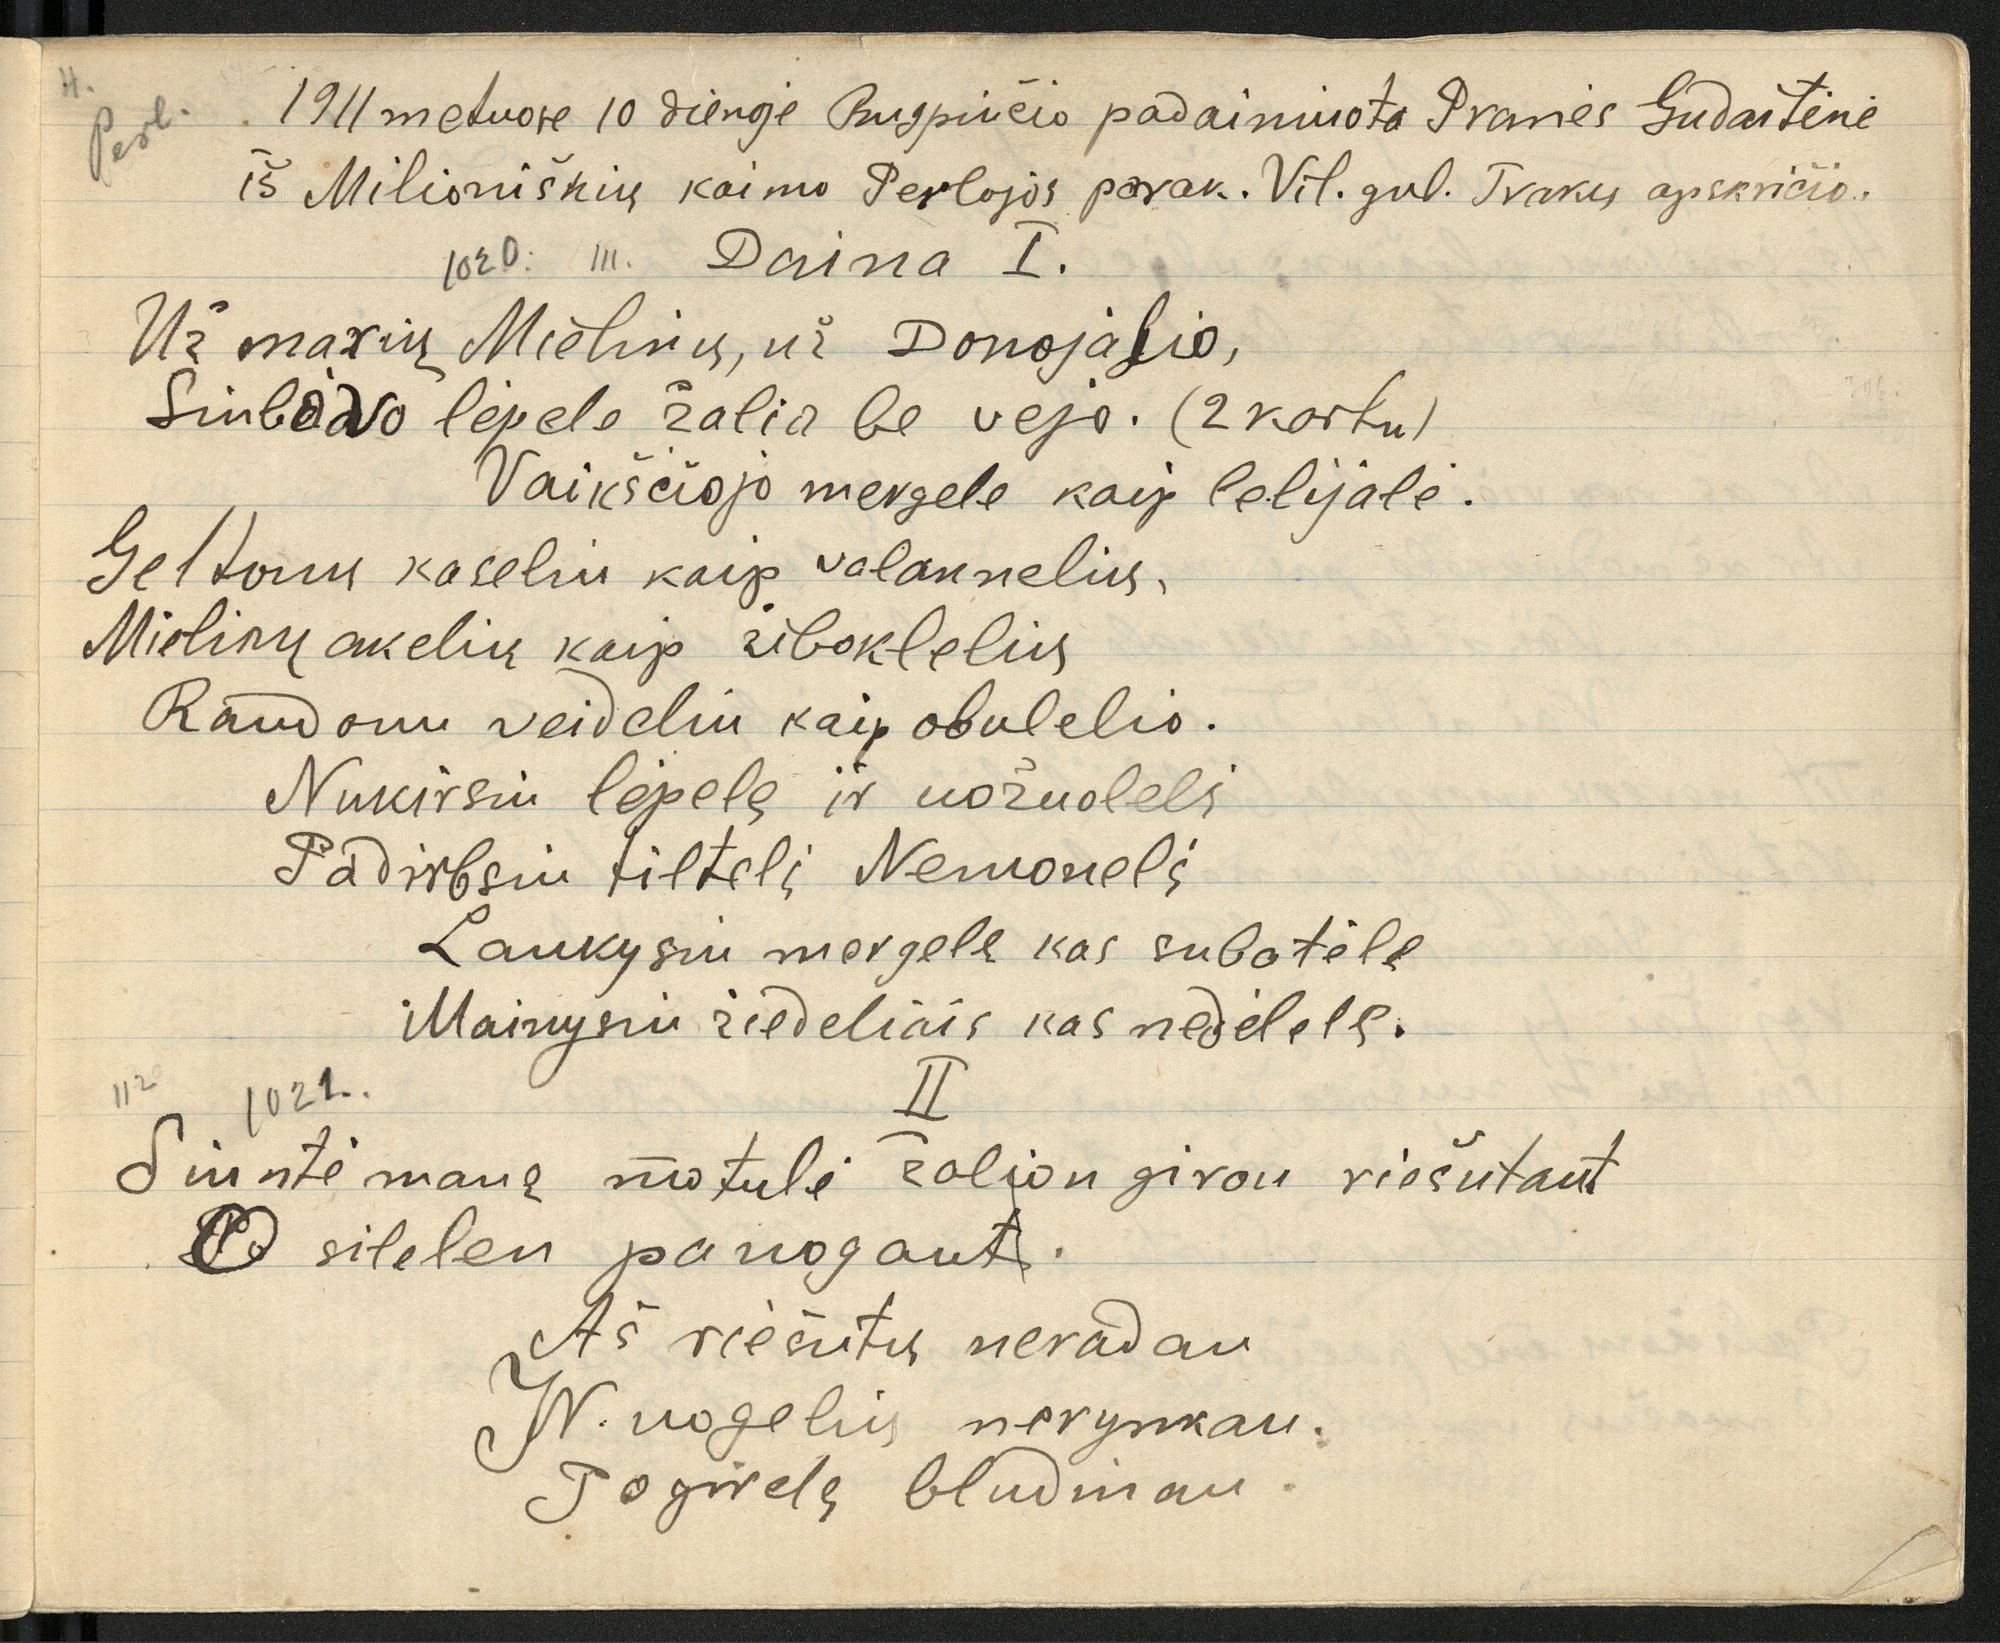 H.
Perl.
1911 metuose 10 dienoje Rugpiučio padainiuota Pranės Gudaitenė
iš Milioniškių kaimo Perlojos parak. Vil. gub. Trakų apskričio.
1020. 111. Daina I.
Už marių Mielinų, už Donojalio,
Siubavo lepele žalia be vejo. (2 kartu)
Vaikščiojo mergele kaip lelijalė.
Geltonų kaseliu kaip valannelių,
Mielinų akelių kaip žiboklelių
Raudonu veideliu kaip obulelio.
Nukirsiu lepelę ir uožuolelį
Padirbsiu tiltelį Nemonelį
Laukysiu mergelę kas subotėlę
Mainysiu žiedeliais kas nedėlelę.
112 1021. II
Siuntė manę motulė žalion giron riešutaut
O silelen panogaut.
Aš riešutų neradau
IN. uogelių nerynkau.
Po girelę bludinau.